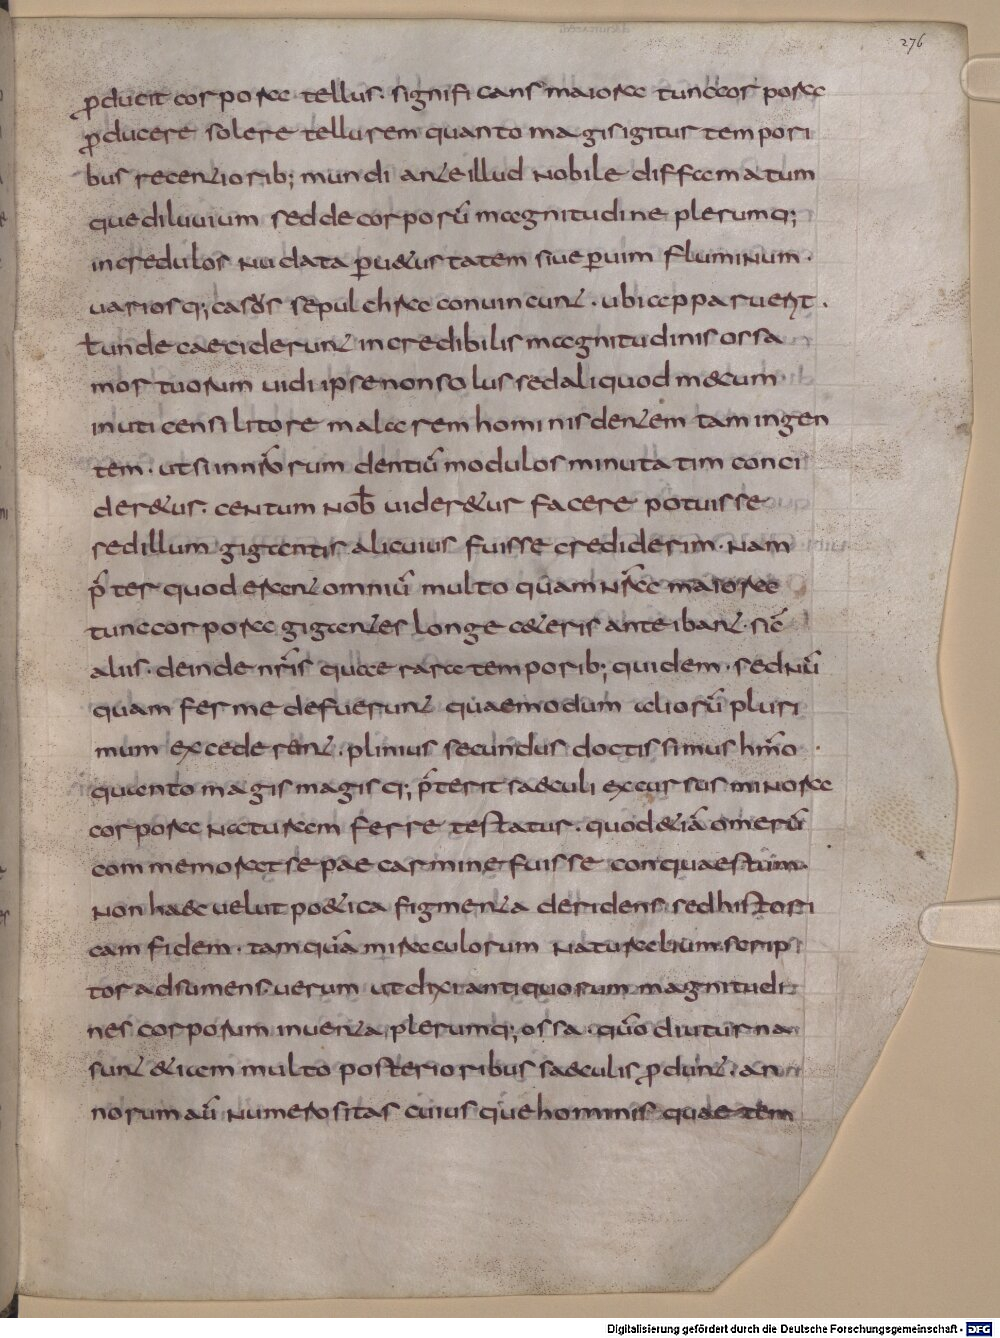 276
ꝓducit corpora tellus. significans maiora tunc corpora
ꝓducere solere tellurem quanto magis igitur tempori
bus recentiorib; mundi ante illud nobile diffamatum
que diluuium sed de corporū magnitudine plerumq;
incredulos nudata ꝑ uetustatem siue ꝑ uim fluminum.
uariosq; casus sepulchra conuincunt. ubi apparuert̄.
ł unde caeciderunt incredibilis magnitudinis ossa
mortuorum uidi ipse non solus sed aliquod mecum
in uticensi litore malarem hominis dentem tam ingen
tem. ut si in nr̄orum dentiū modulos minutatim conci
deretur. centum nob̄ uideretur facere potuisse
sed illum gigantis alicuius fuisse crediderim. nam
p̄ter quod erant omniū multo quam nr̄a maiora
tunc corpora gigantes longe ceteris anteibant. sic̄
aliis. deinde nr̄is quae rara temporib; quidem. sed nū
quam ferme defuerunt quae modum aliorū pluri
mum excederent. plinius secundus doctissimus hm̄o
quanto magis magisq; p̄terit saeculi excursus minora
corpora naturam ferre testatur. quod etiā omerū
commemorat sepae carmine fuisse conquaestum.
non haec uelut poetica figmenta deridens sed histori
cam fidem. tamquā miraculorum naturalium scrip
tor adsumens uerum ut dixi antiquorum magnitudi
nes corporum inuenta plerumq; ossa quō diuturna
sunt et item multo posterioribus saeculis ꝓdunt. an
norum aū numerositas cuiusque hominis quae tem
Digitalisierung gefördert durch die Deutsche Forschungsgemeinschaft - DFG